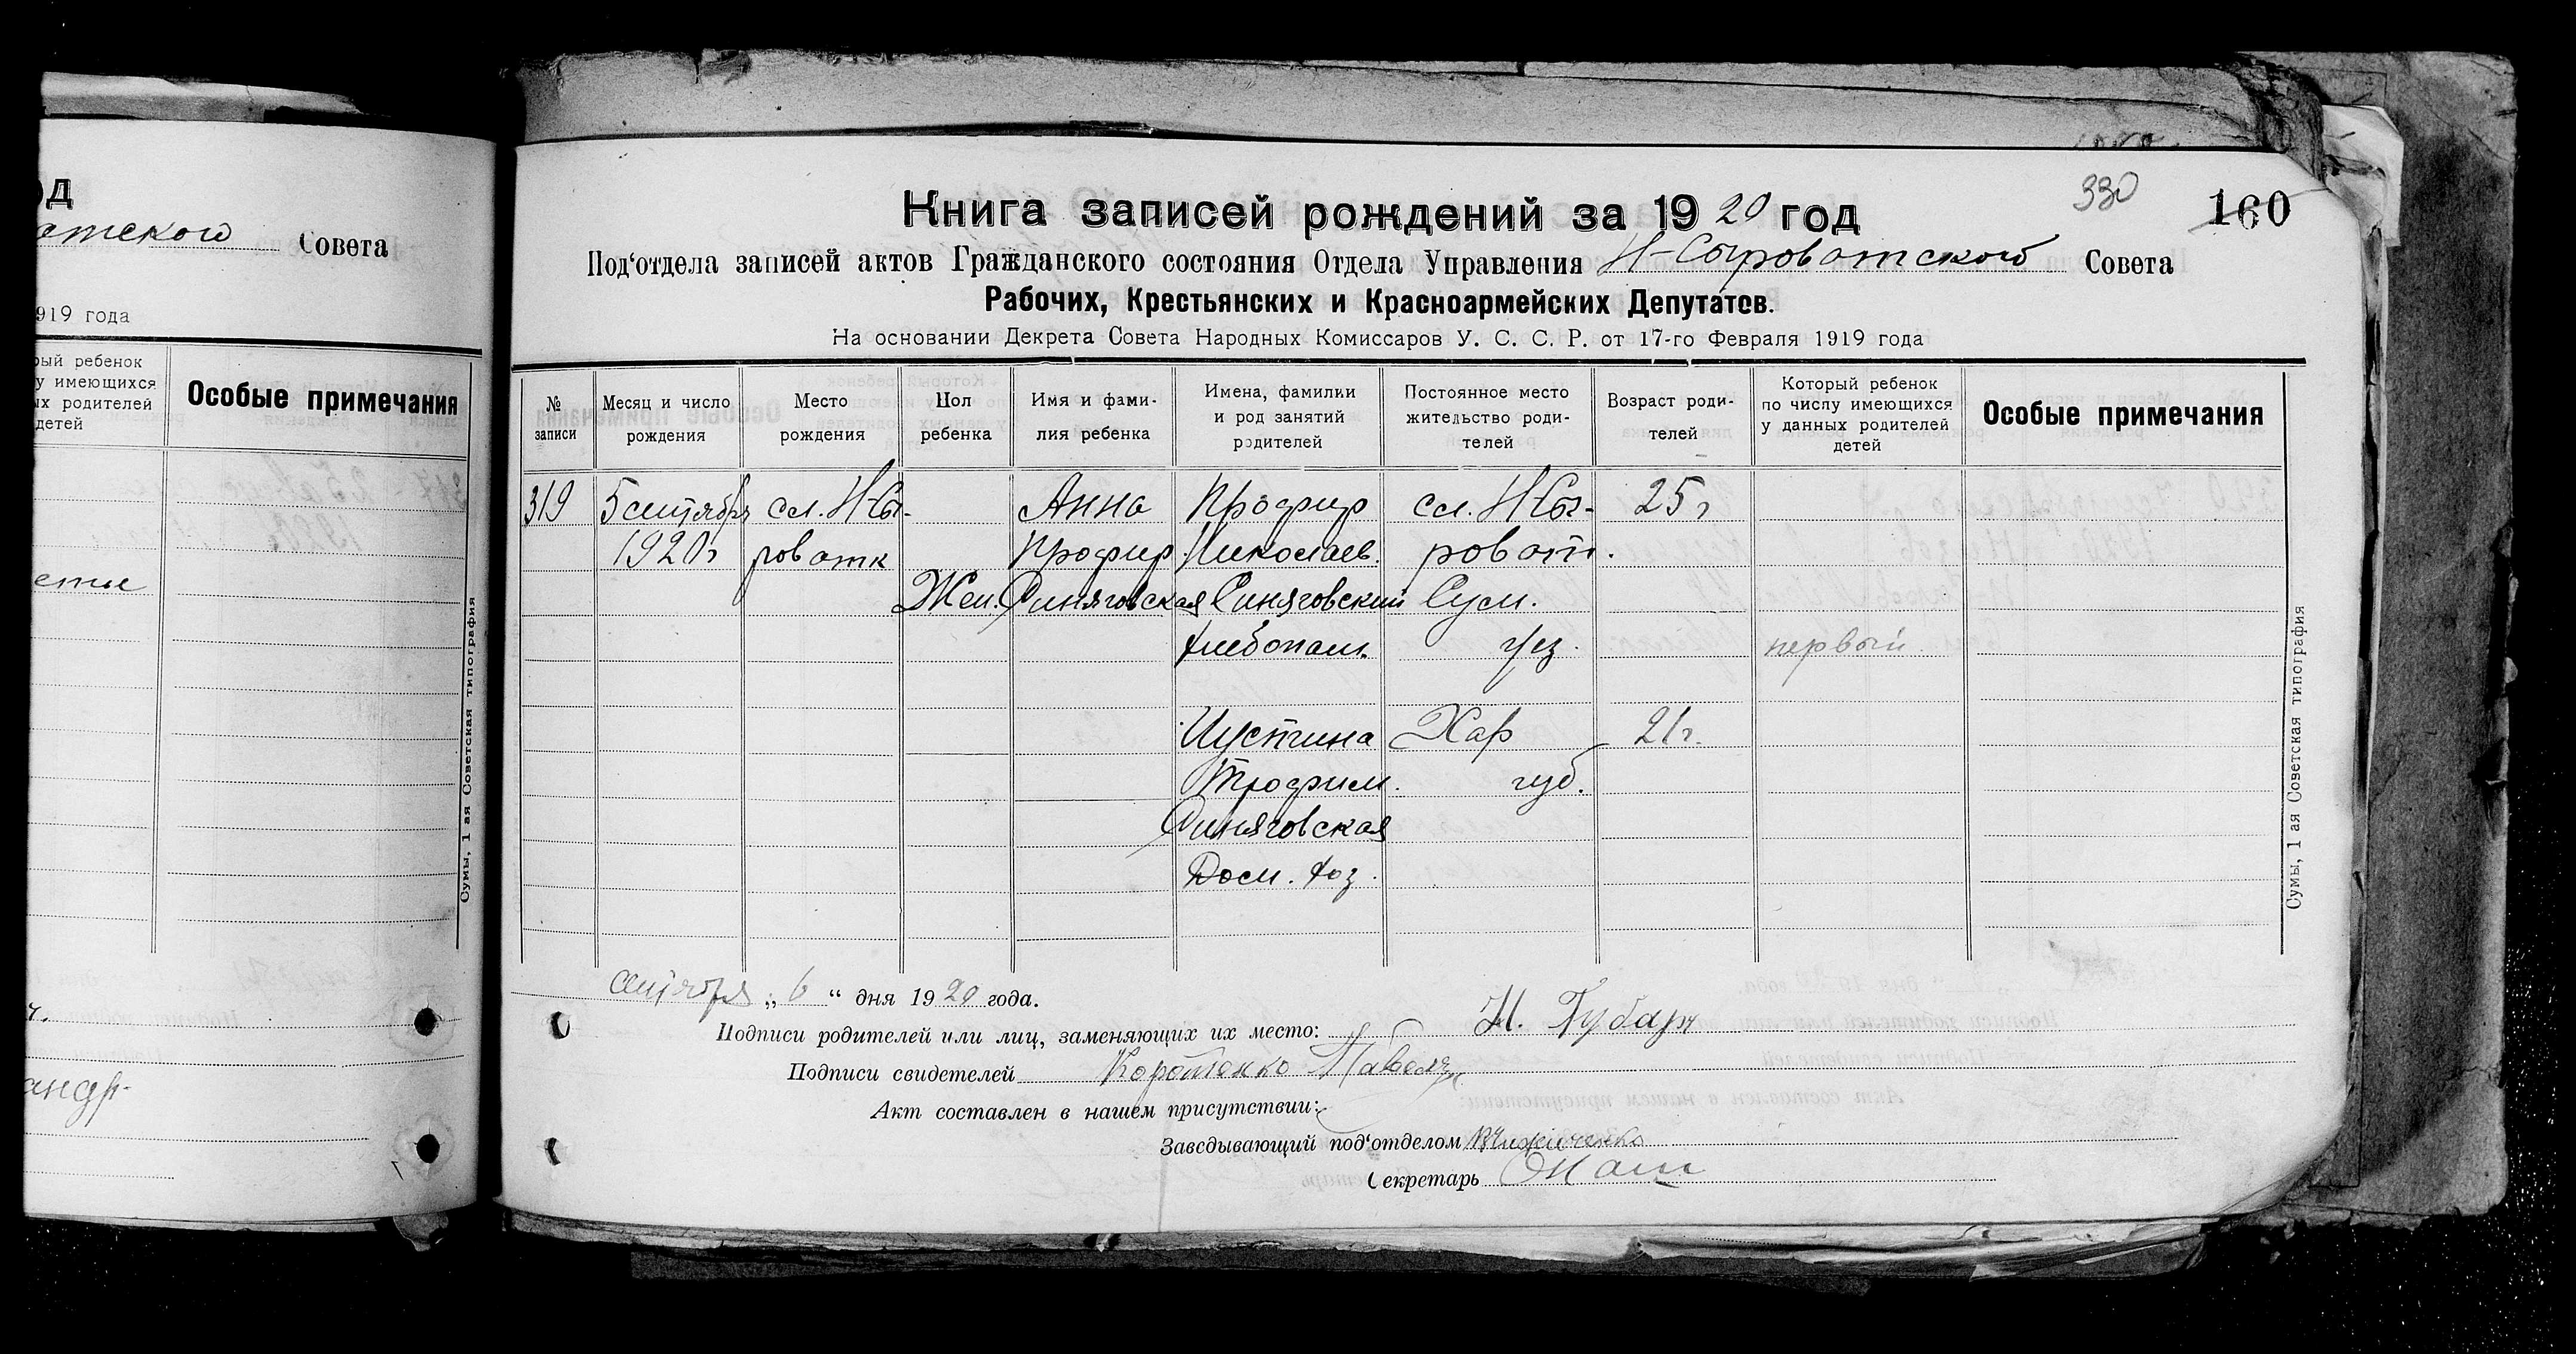 од
отской Совета
919 года
рый ребенок
у имеющихся
ых родителей
детей
Особые примечания
Сумы, 1 ая Советская типография
андр-
330
160
Книга записей рождений за 1920 год
Под'отдела записей актов Гражданского состояния Отдела Управления Н-Сыроватской Совета
Рабочих, Крестьянских и Красноармейских Депутатов.
На основании Декрета Совета Народных Комиссаров У. С. С. Р. от 17-го Февраля 1919 года
№ записи
Месяц и число рождения
Место рождения
Пол ребенка
Имя и фами-
лия ребенка
Имена, фамилки
и род занятий
родителей
Постоянное место
жительство роди-
телей
Возраст роди-
телей
Который ребенок
по числу имеющихся
у данных родителей
детей
Особые примечания
319 5 сентября сл. Н-Сы- Анна Профир сл. Н-Сы- 25 г
1920 г роватк Профир. Николаев. роват.
Жен. Синяговская Синяговский Сум.
хлебопаш. уез. первый
Иустина Хар 21 г.
Трофим. губ.
Синяговская
Дом. хоз.
Сумы, 1 ая Советская типография
сентября „6“ дня 1920 года.
Подписи родителей или лиц, заменяющих их место: Н. Губарь
Подписи свидетелей Коротенко Павел
Акт составлен в нашем присутствии:
Заведывающий под'отделом
Секретарь